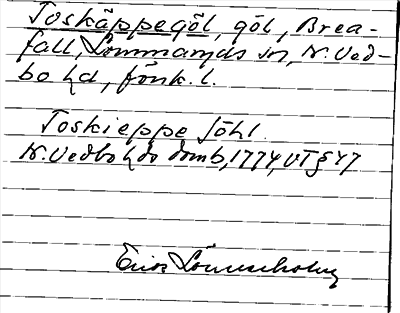 Toskäppegöl, göl, Brea-
fall, Lommaryds sn, N. Ved-
bo hd, Jönk. l.
Toskieppe Jöhl.
N. Vedbo hds domb, 1774, VT § 47
Eric